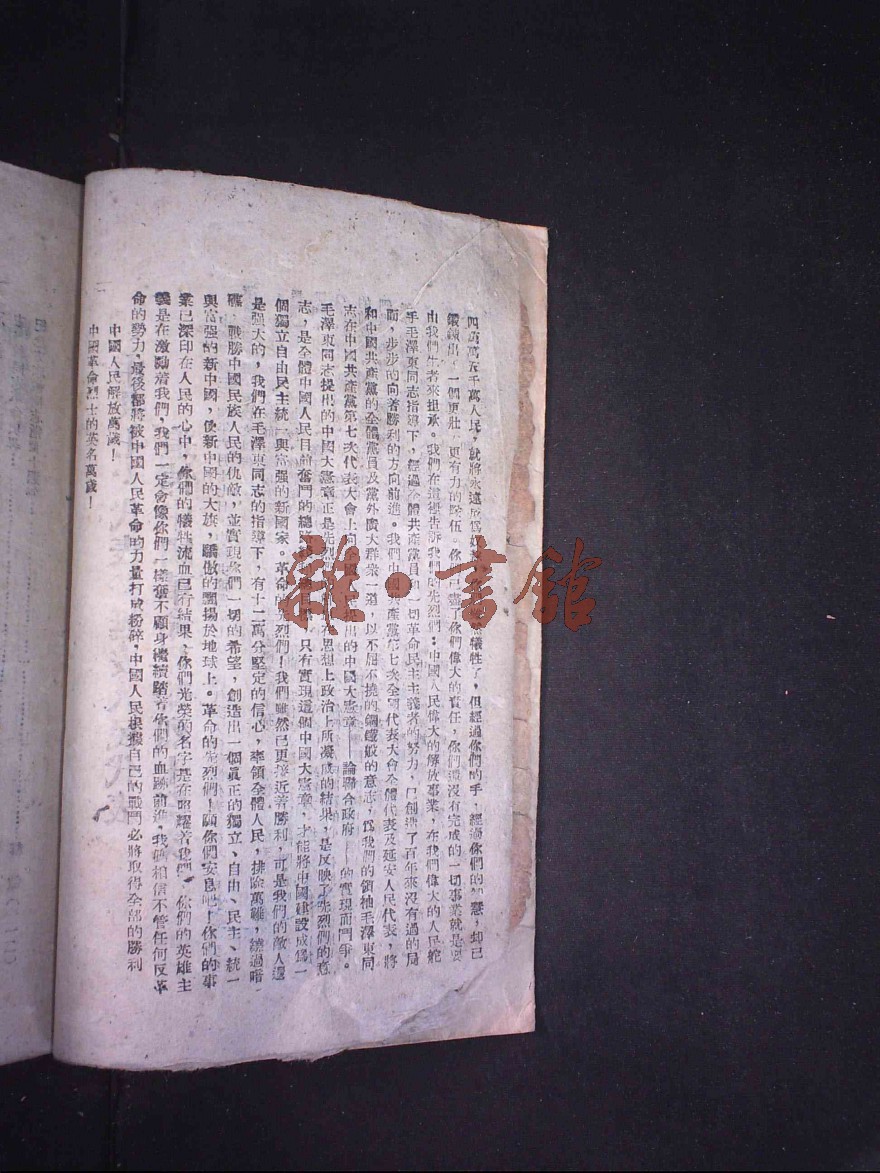 四萬萬五千萬人民，就將永遠成爲奴 犧牲了，但經過你們的手，經過你們的智慧，却已
鍛鍊出了一個更壯 更有力的隊伍。你 已盡 你們偉大的責任，你們還沒有完成的一切事業就是要
由我們生者來担承。我們在這裡告訴我們的先烈們：中國人民偉大的解放事業，在我們偉大的人民舵
手毛澤東同志指導下，經過全體共產黨員和一切革命民主主義者的努力，已創造了百年來沒有過的局
面，步步的向着勝利的方向前進。我們中國共產黨第七次全國代表大會全體代表及延安人民代表，將
和中國共產黨的全體黨員及黨外廣大群衆一道，以不屈不撓的鋼鐵般的意志，爲我們的領袖毛澤東同
志在中國共產黨第七次代表大會上向全 出的中國大憲章——論聯合政府——的實現而鬥爭。
毛澤東同志提出的中國大憲章正是先烈 思想上政治上所凝成的結果，是反映了先烈們的意
志，是全體中國人民目前奮鬥的總 只有實現這個中國大憲章，才能將中國建設成爲一
個獨立自由民主統一與富强的新國家。革命的 烈們！我們雖然已更接近着勝利，可是我們的敵人還
是强大的，我們在毛澤東同志的指導下，有十二萬分堅定的信心，率領全體人民，排除萬難，繞過暗
礁，戰勝中國民族人民的仇敵，並實現你們一切的希望，創造出一個眞正的獨立、自由、民主、統一
與富强的新中國，使新中國的大旗，驕傲的飄揚於地球上。革命的先烈們！願你們安息吧！你們的事
業已深印在人民的心中，你們的犧牲流血已有結果，你們光榮的名字是在照耀着我們，你們的英雄主
義是在激勵着我們，我們一定會像你們一樣奮不顧身繼續踏着你們的血跡前進，我確相信不管任何反革
命的勢力，最後都將被中國人民革命的力量打成粉碎，中國人民根據自己的戰鬥必將取得全部的勝利
中國人民解放萬歲！
中國革命烈士的英名萬歲！
雜·書館